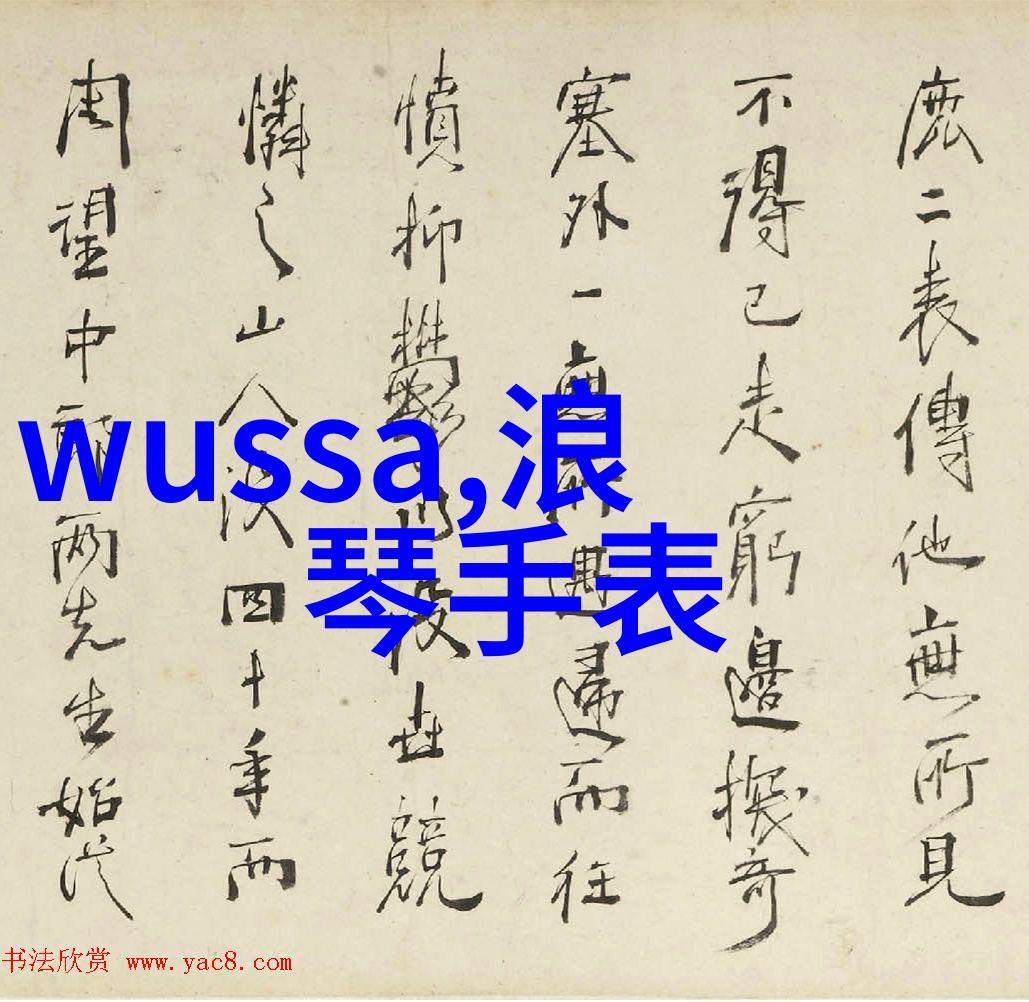 鹿二表傳他無所見
不得已走窮邊奇
塞外一無所遇而往
憤抑鬱世競
憐之山人沒四十年而
周望中郎兩先生始從
wussa,浪
琴手表
书法欣赏 www.yac8.com